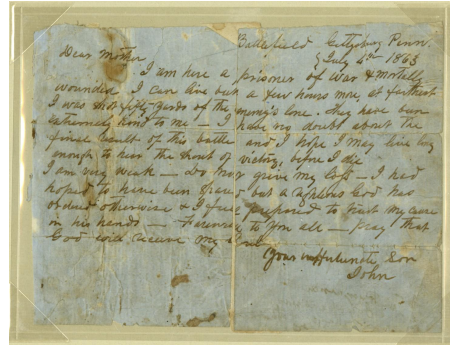 Battlefield Gettysburg Penn.
Dear Mother July 4th 1863
I am here a prisoner of war & mortally
wounded. I can live but a few hours more at farthest
I was shot fifty yards of the enemy's line. They have been
extremely kind to me — I have no doubt about the
final result of this battle and I hope I may live long
enough to hear the shout of victory, before I die
I am very weak — Do not grieve my loss — I had
hoped to have been spared but a righteous God has
ordered otherwise & I feel prepared to trust my case
in his hands — Farewell to you all — pray that
God will receive my soul
Your unfortunate Son
John